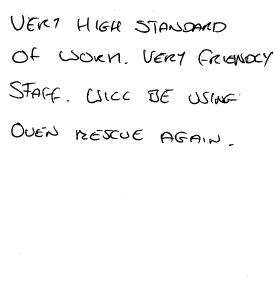 VERY HIGH STANDARD
OF WORK. VERY FRIENDLY
STAFF. WILL BE USING
OVEN RESCUE AGAIN.